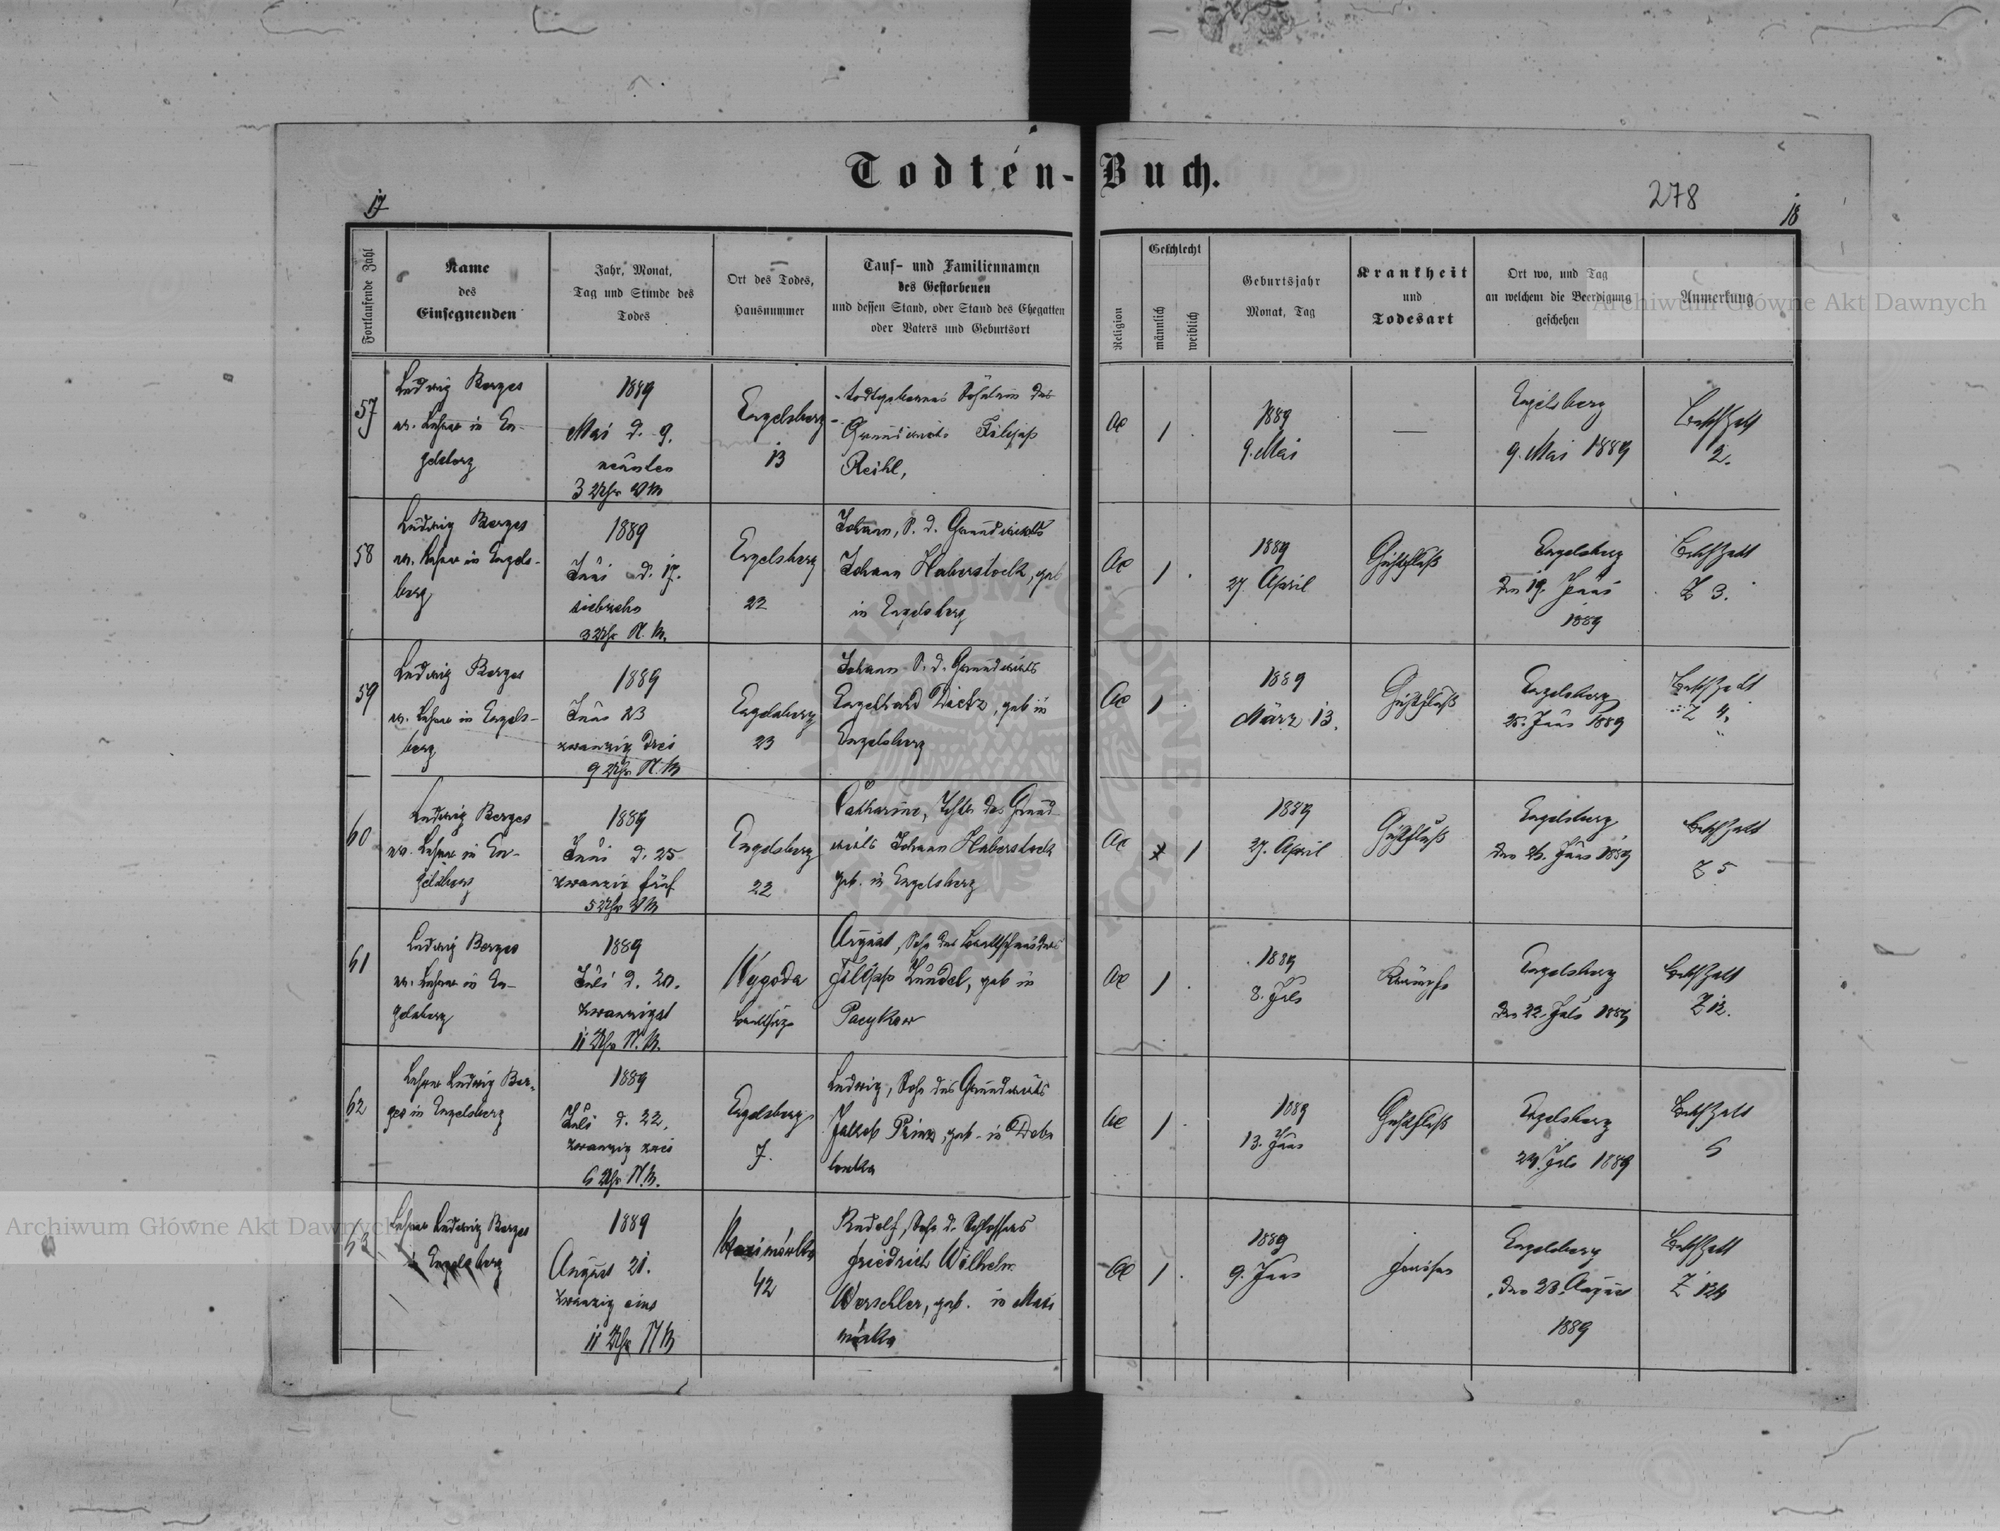 Todten-Buch.
17
278
18
Fortlaufende Zahl
Name
des
Einsegnenden
Jahr, Monat,
Tag und Stunde des
Todes
Ort des Todes,
Hausnummer
Tauf- und Familiennamen
des Gestorbenen
und dessen Stand, oder Stand des Ehegatten
oder Vaters und Geburtsort
Religion
Geschlecht
männlich
weiblich
Geburtsjahr
Monat, Tag
Krankheit
und
Todesart
Ort wo, und Tag
an welchem die Beerdigung
geschehen
Anmerkung
Archiwum Główne Akt Dawnych
57
Ludwig Berges
ev. Lehrer in En-
gelsberg
1889
Mai d. 9.
neunten
3 Uhr VM
Engelsberg
13
todtgebornes Söhnlein des
Grundwirts Filipp
Reihl,
1
1889
9. Mai
—
Engelsberg
9. Mai 1889
2.
58
Ludwig Berges
ev. Lehrer in Engels-
berg
1889
Juni d. 17.
siebzehn
3 Uhr N. M.
Engelsberg
22
Johann, S. d. Grundwirts
Johann Haberstock, geb
in Engelsberg
1
1889
27. April
Engelsberg
den 19. Juni
1889
Z 3.
59
Ludwig Berges
ev. Lehrer in Engels-
berg
1889
Juni 23
zwanzig drei
9 Uhr N. M
Engelsberg
23
Johann S. d. Grundwirts
Engelhard Dietz, geb in
Engelsberg
1
1889
März 13.
Engelsberg
25. Juni 1889
Z 4.
60
Ludwig Berges
ev. Lehrer in En-
gelsberg
1889
Juni d. 25
zwanzig fünf
5 Uhr VM
Engelsberg
22
Catharina, Tochter des Grund
wirts Johann Haberstock
geb. in Engelsberg
1
1889
27. April
Engelsberg
den 26. Juni 1889
Z 5
61
Ludwig Berges
ev. Lehrer in En-
gelsberg
1889
Juli d. 20.
zwanzigst
11 Uhr N. M.
Wygoda
August, Sohn des Brettschneiders
Filipp Zundel, geb in
Pacykow
1
1889
8. Juli
Krämpfe
Engelsberg
den 22. Juli 1889
Z 12.
62
Lehrer Ludwig Ber-
ges in Engelsberg
1889
Juli d. 22.
zwanzig zwei
6 Uhr N. M.
Engelsberg
7.
Ludwig, Sohn des Grundwirts
Jakob Prinz, geb. in Debo
lowka
1
1889
13. Juni
Engelsberg
24. Juli 1889
6
63
Lehrer Ludwig Berges
in Engelsberg
1889
August 21.
zwanzig eins
11 Uhr NM
42
Rudolf, Sohn d. Schlossers
Friedrich Wilhelm
Werschler, geb. in Maxi
mówka
1
1889
9. Juni
Engelsberg
den 23. August
1889
Archiwum Główne Akt Dawnych